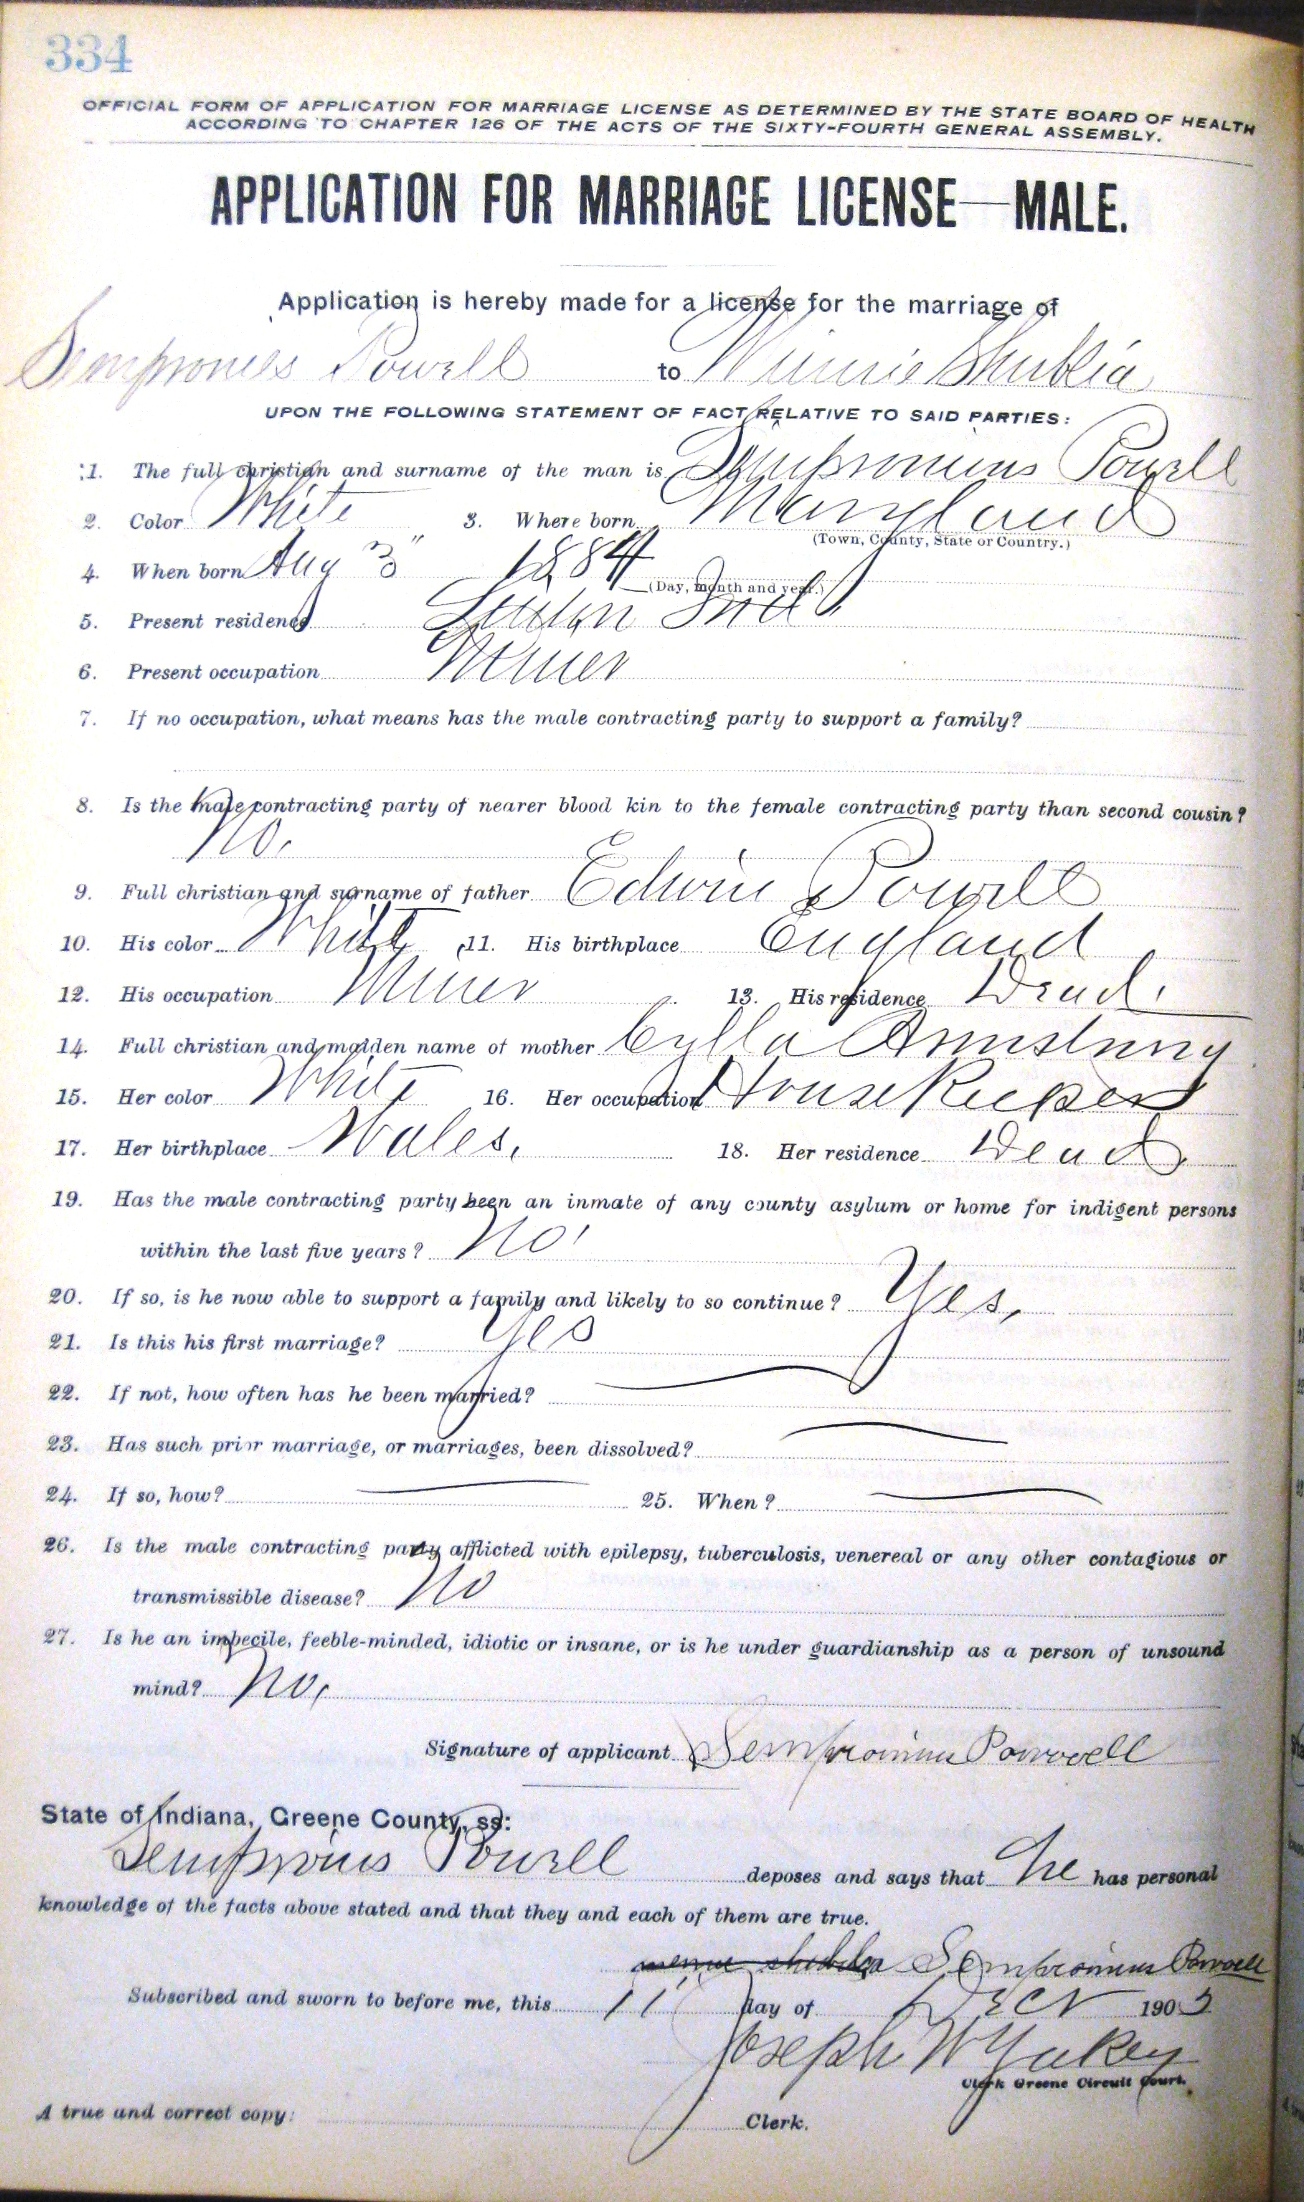 334
OFFICIAL FORM OF APPLICATION FOR MARRIAGE LICENSE AS DETERMINED BY THE STATE BOARD OF HEALTH
ACCORDING TO CHAPTER 126 OF THE ACTS OF THE SIXTY-FOURTH GENERAL ASSEMBLY.
APPLICATION FOR MARRIAGE LICENSE—MALE.
Application is hereby made for a license for the marriage of
Powell to Minnie
UPON THE FOLLOWING STATEMENT OF FACT RELATIVE TO SAID PARTIES:
1. The full christian and surname of the man is Sempronius Powell
2. Color White 3. Where born Maryland
(Town, County, State or Country.)
4. When born Aug 3" 1884
(Day, month and year.)
5. Present residence Linton Ind
6. Present occupation Miner
7. If no occupation, what means has the male contracting party to support a family?
8. Is the male contracting party of nearer blood kin to the female contracting party than second cousin?
No.
9. Full christian and surname of father Edwin Powell
10. His color White 11. His birthplace England
12. His occupation Miner 13. His residence Dead.
14. Full christian and maiden name of mother Cylla Armstrong
15. Her color White 16. Her occupation House Keeper
17. Her birthplace Wales. 18. Her residence Dead
19. Has the male contracting party been an inmate of any county asylum or home for indigent persons
within the last five years? No
20. If so, is he now able to support a family and likely to so continue? Yes.
21. Is this his first marriage? Yes
22. If not, how often has he been married?
23. Has such prior marriage, or marriages, been dissolved?
24. If so, how? 25. When?
26. Is the male contracting party afflicted with epilepsy, tuberculosis, venereal or any other contagious or
transmissible disease? No
27. Is he an imbecile, feeble-minded, idiotic or insane, or is he under guardianship as a person of unsound
mind? No.
Signature of applicant Sempronius Powell
State of Indiana, Greene County, ss:
Sempronius Powell deposes and says that he has personal
knowledge of the facts above stated and that they and each of them are true.
Sempronius Powell
Subscribed and sworn to before me, this 11 day of Dec 1905
Joseph W Yakey
Clerk Greene Circuit Court.
A true and correct copy: Clerk.